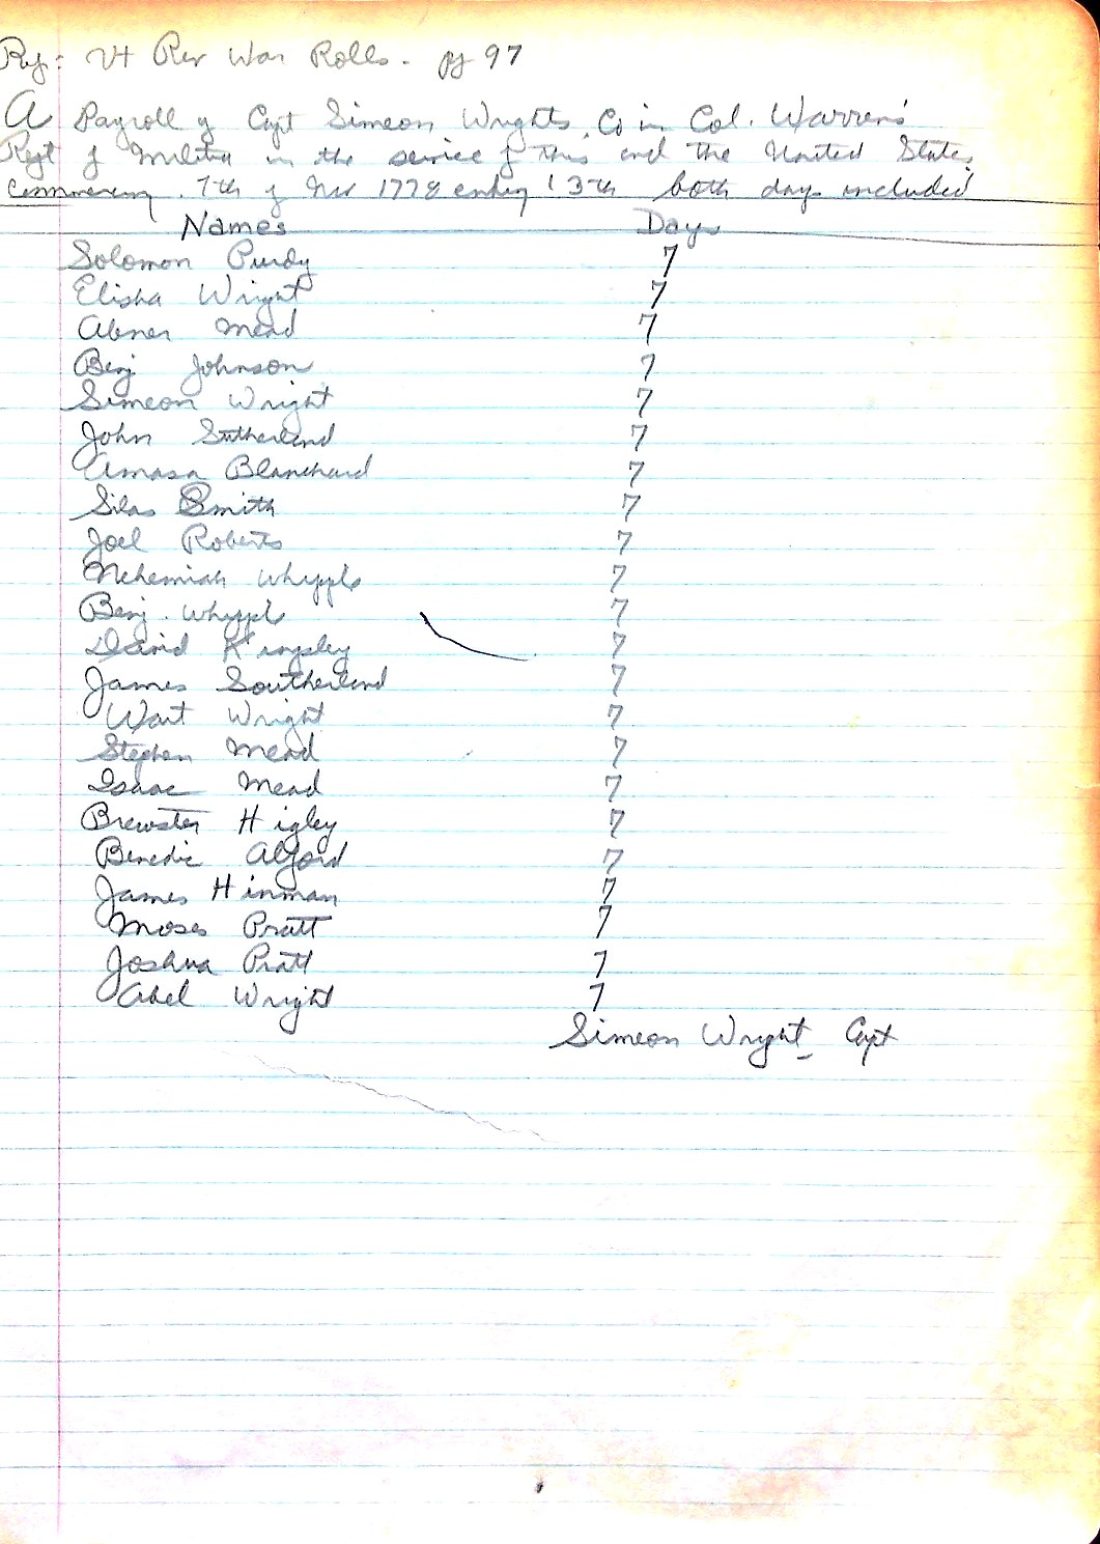 Ref: Vt Rev War Rolls. pg 97
A Payroll of Capt Simeon Wrights Co in Col. Warren's
Regt of Militia in the service of this and the United States
commencing 7th of Nov 1778 ending 13th both days included
Names Days
Solomon Purdy 7
Elisha Wright 7
Abner Mead 7
Benj Johnson 7
Simeon Wright 7
John Sutherland 7
Amasa Blanchard 7
Silas Smith 7
Joel Roberts 7
Nehemiah Whipple 7
Benj. Whippl 7
David Kingsley 7
James Southerland 7
Wait Wright 7
Stephen Mead 7
Isaac Mead 7
Brewster Higley 7
Benedic Alford 7
James Hinman 7
Moses Pratt 7
Joshua Pratt 7
Abel Wright 7
Simeon Wright Capt